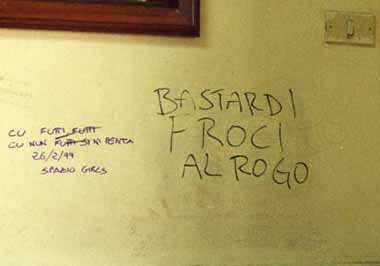 CU FUTTI FUTTI
CU NUN FUTTI SI NI PENTA
26/2/99
SPAZIO GIRLS
BASTARDI
FROCI
AL ROGO